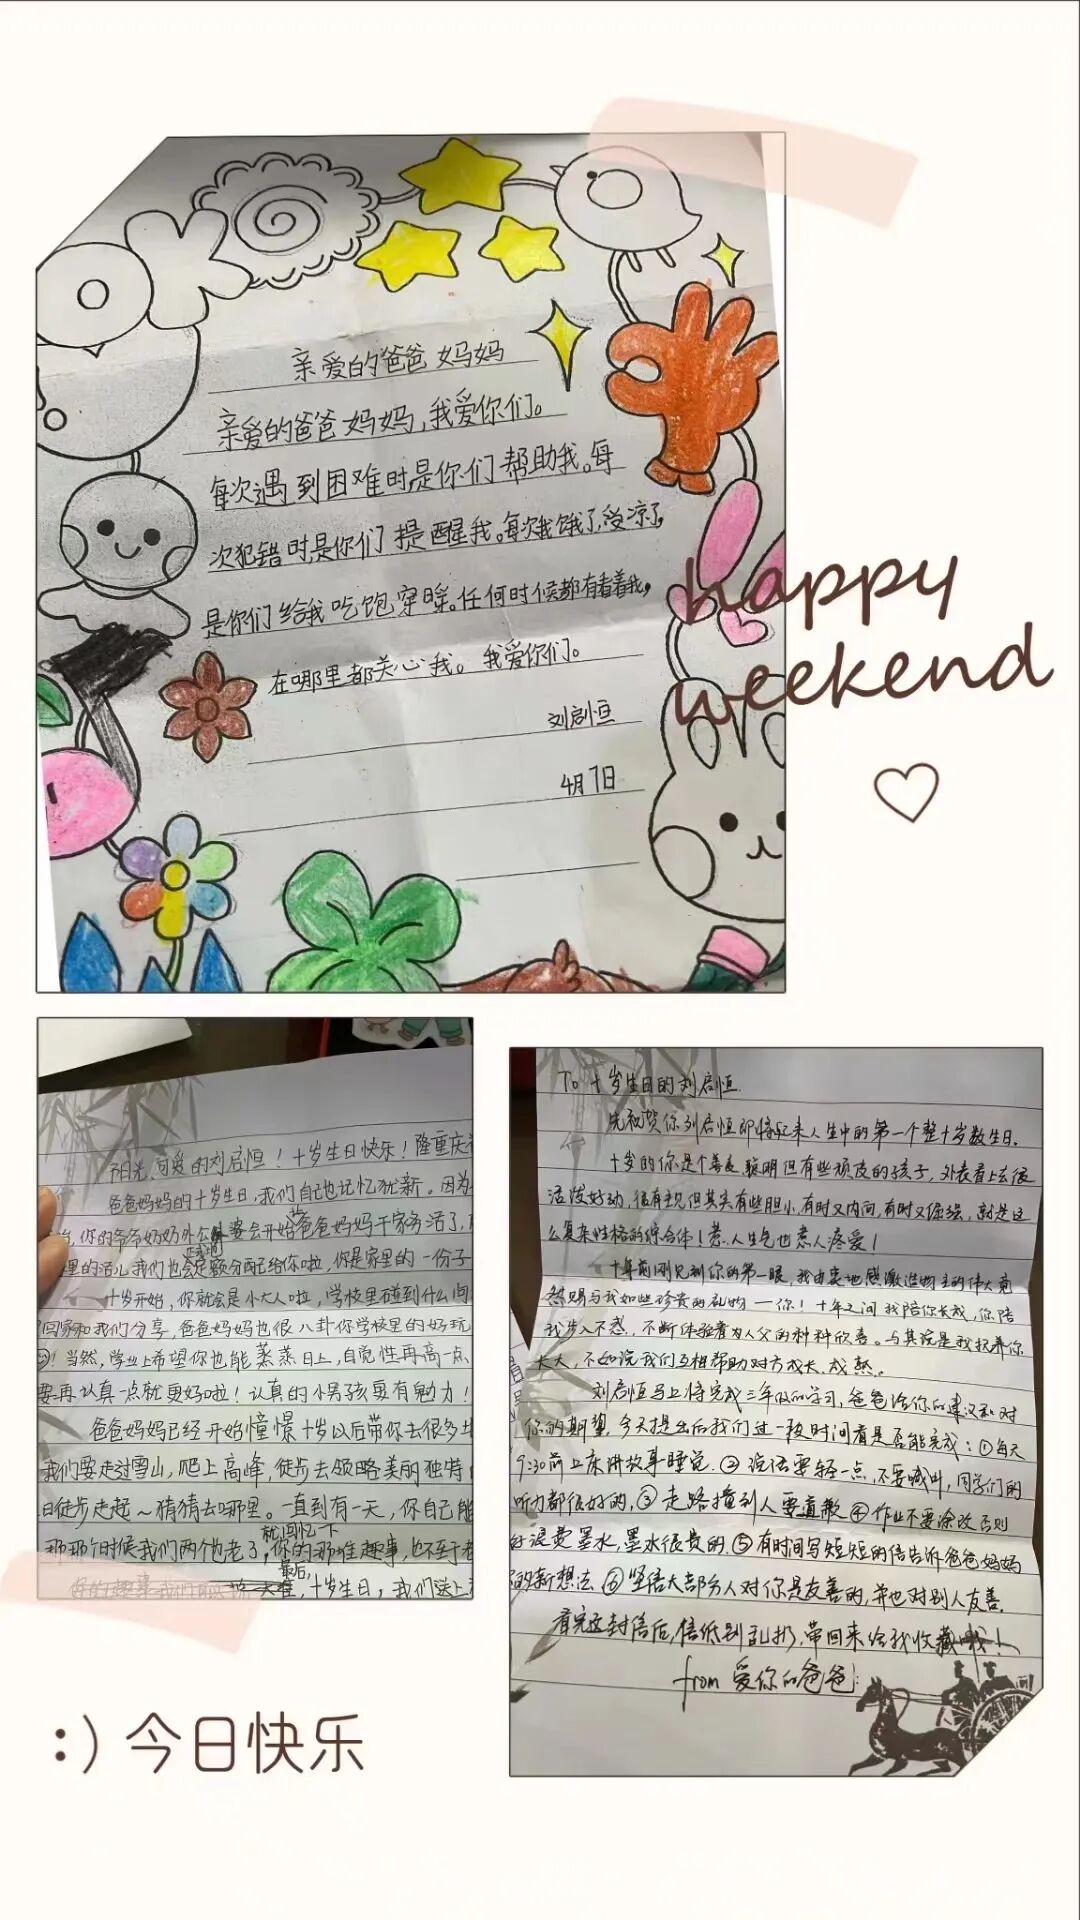 OK
亲爱的爸爸妈妈
亲爱的爸爸妈妈，我爱你们。
每次遇到困难时，是你们帮助我。每
次犯错时，是你们提醒我。每次我饿了，受凉了，
是你们给我吃饱穿暖。任何时候都有看着我，
在哪里都关心我。我爱你们。
刘启恒
4月7日
happy
weekend
阳光、可爱的刘启恒！十岁生日快乐！隆重庆
爸爸妈妈的十岁生日，我们自己也记忆犹新。因为
你的爷爷奶奶外公外婆会开始爸爸妈妈干家务活了，
里的活儿我们也会足额分配给你啦，你是家里的一份子
十岁开始，你就会是小大人啦，学校里碰到什么问
回家和我们分享，爸爸妈妈也很八卦你学校里的好玩
当然，学业上希望你也能蒸蒸日上，自觉性再高一点、
要再认真一点就更好啦！认真的小男孩更有魅力！
爸爸妈妈已经开始憧憬十岁以后带你去很多
我们要走过雪山，爬上高峰，徒步去领略美丽独特
日徒步走起~猜猜去哪里。一直到有一天，你自己能
那那个时候我们两个也老了，就回忆一下你的那堆趣事，也不至于老
最后，十岁生日，我们送上
To 十岁生日的刘启恒
先祝贺你刘启恒即将迎来人生中的第一个整十岁数生日。
十岁的你是个善良聪明但有些顽皮的孩子，外表看上去很
活泼好动，很有主见但其实有些胆小，有时又内向，有时又倔强，就是这
么复杂性格的综合体！惹人生气也惹人疼爱！
十年前刚见到你的第一眼，我由衷地感激造物主的伟大竟
然赐与我如此珍贵的礼物——你！十年之间我陪你长成，你陪
我步入不惑，不断体验着为人父的种种欣喜。与其说是我抚养你
长大，不如说我们互相帮助对方成长、成熟。
刘启恒马上将完成三年级的学习，爸爸给你的建议和对
你的期望，今天提出后我们过一段时间看是否能完成：①每天
9:30前上床讲故事睡觉．②说话要轻一点，不要喊叫，同学们的
听力都很好的，③走路撞到人要道歉④作业不要涂改否则
好浪费墨水，墨水很贵的．⑤有时间写短短的信告诉爸爸妈妈
的新想法．⑥坚信大部分人对你是友善的，并也对别人友善．
看完这封信后，信纸别乱扔，带回来给我收藏哦！
from 爱你的爸爸
:) 今日快乐